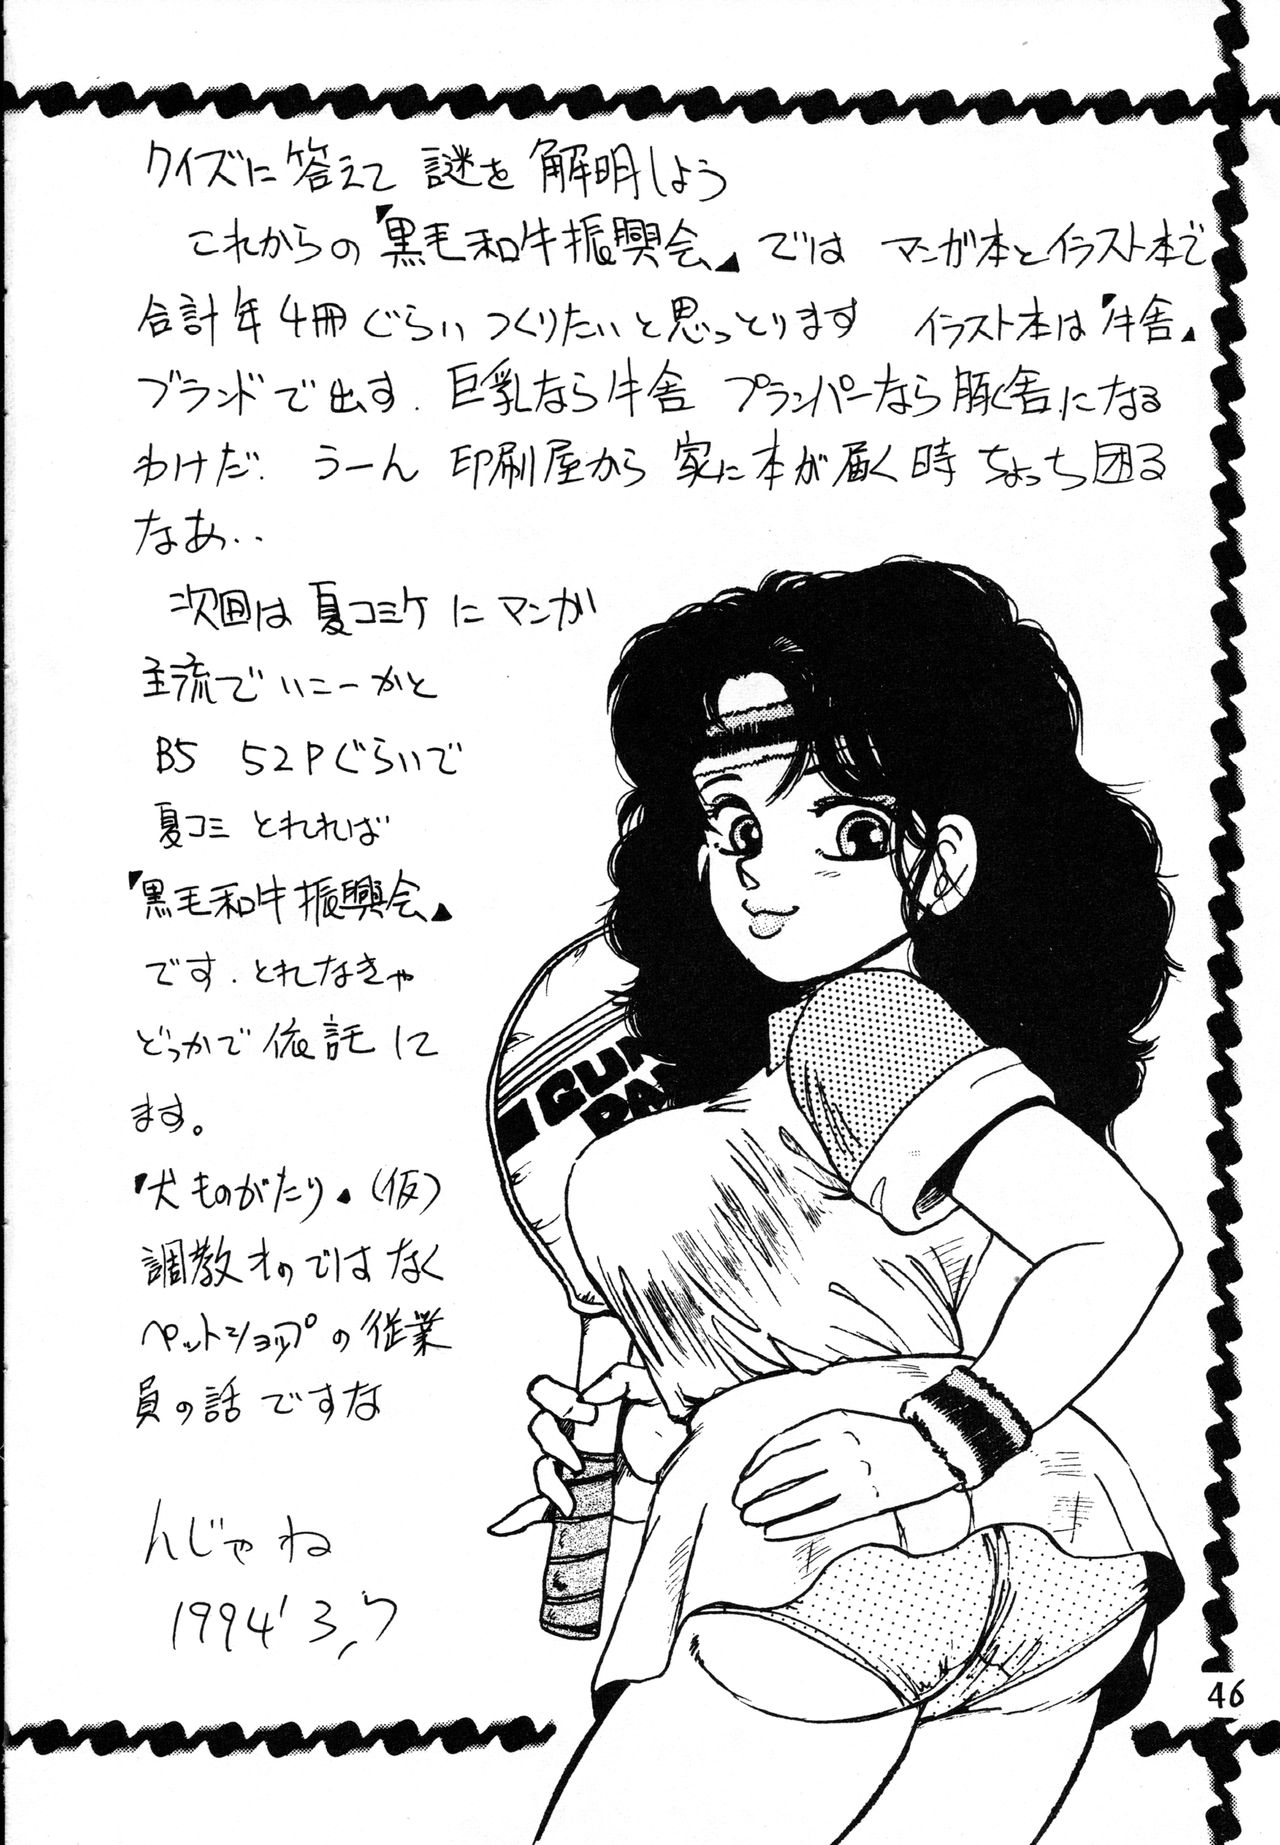 クイズに答えて 謎を 解明しよう
これからの『黒毛和牛振興会』では マンガ本とイラスト本で
合計年4冊ぐらい つくりたいと思っとります イラスト本は『牛舎』
ブランドで出す. 巨乳なら牛舎 プランパーなら豚舎になる
わけだ. うーん 印刷屋から 家に本が届く時 ちょっち困る
なあ..
次回は 夏コミケ に マンガ
主流で いこーかと
B5 52Pぐらいで
夏コミ とれれば
『黒毛和牛振興会』
です. とれなきゃ
どっかで 依託して
ます。
『犬ものがたり』(仮)
調教ものではなく
ペットショップの従業
員の話ですな
んじゃね
1994' 3,7
46